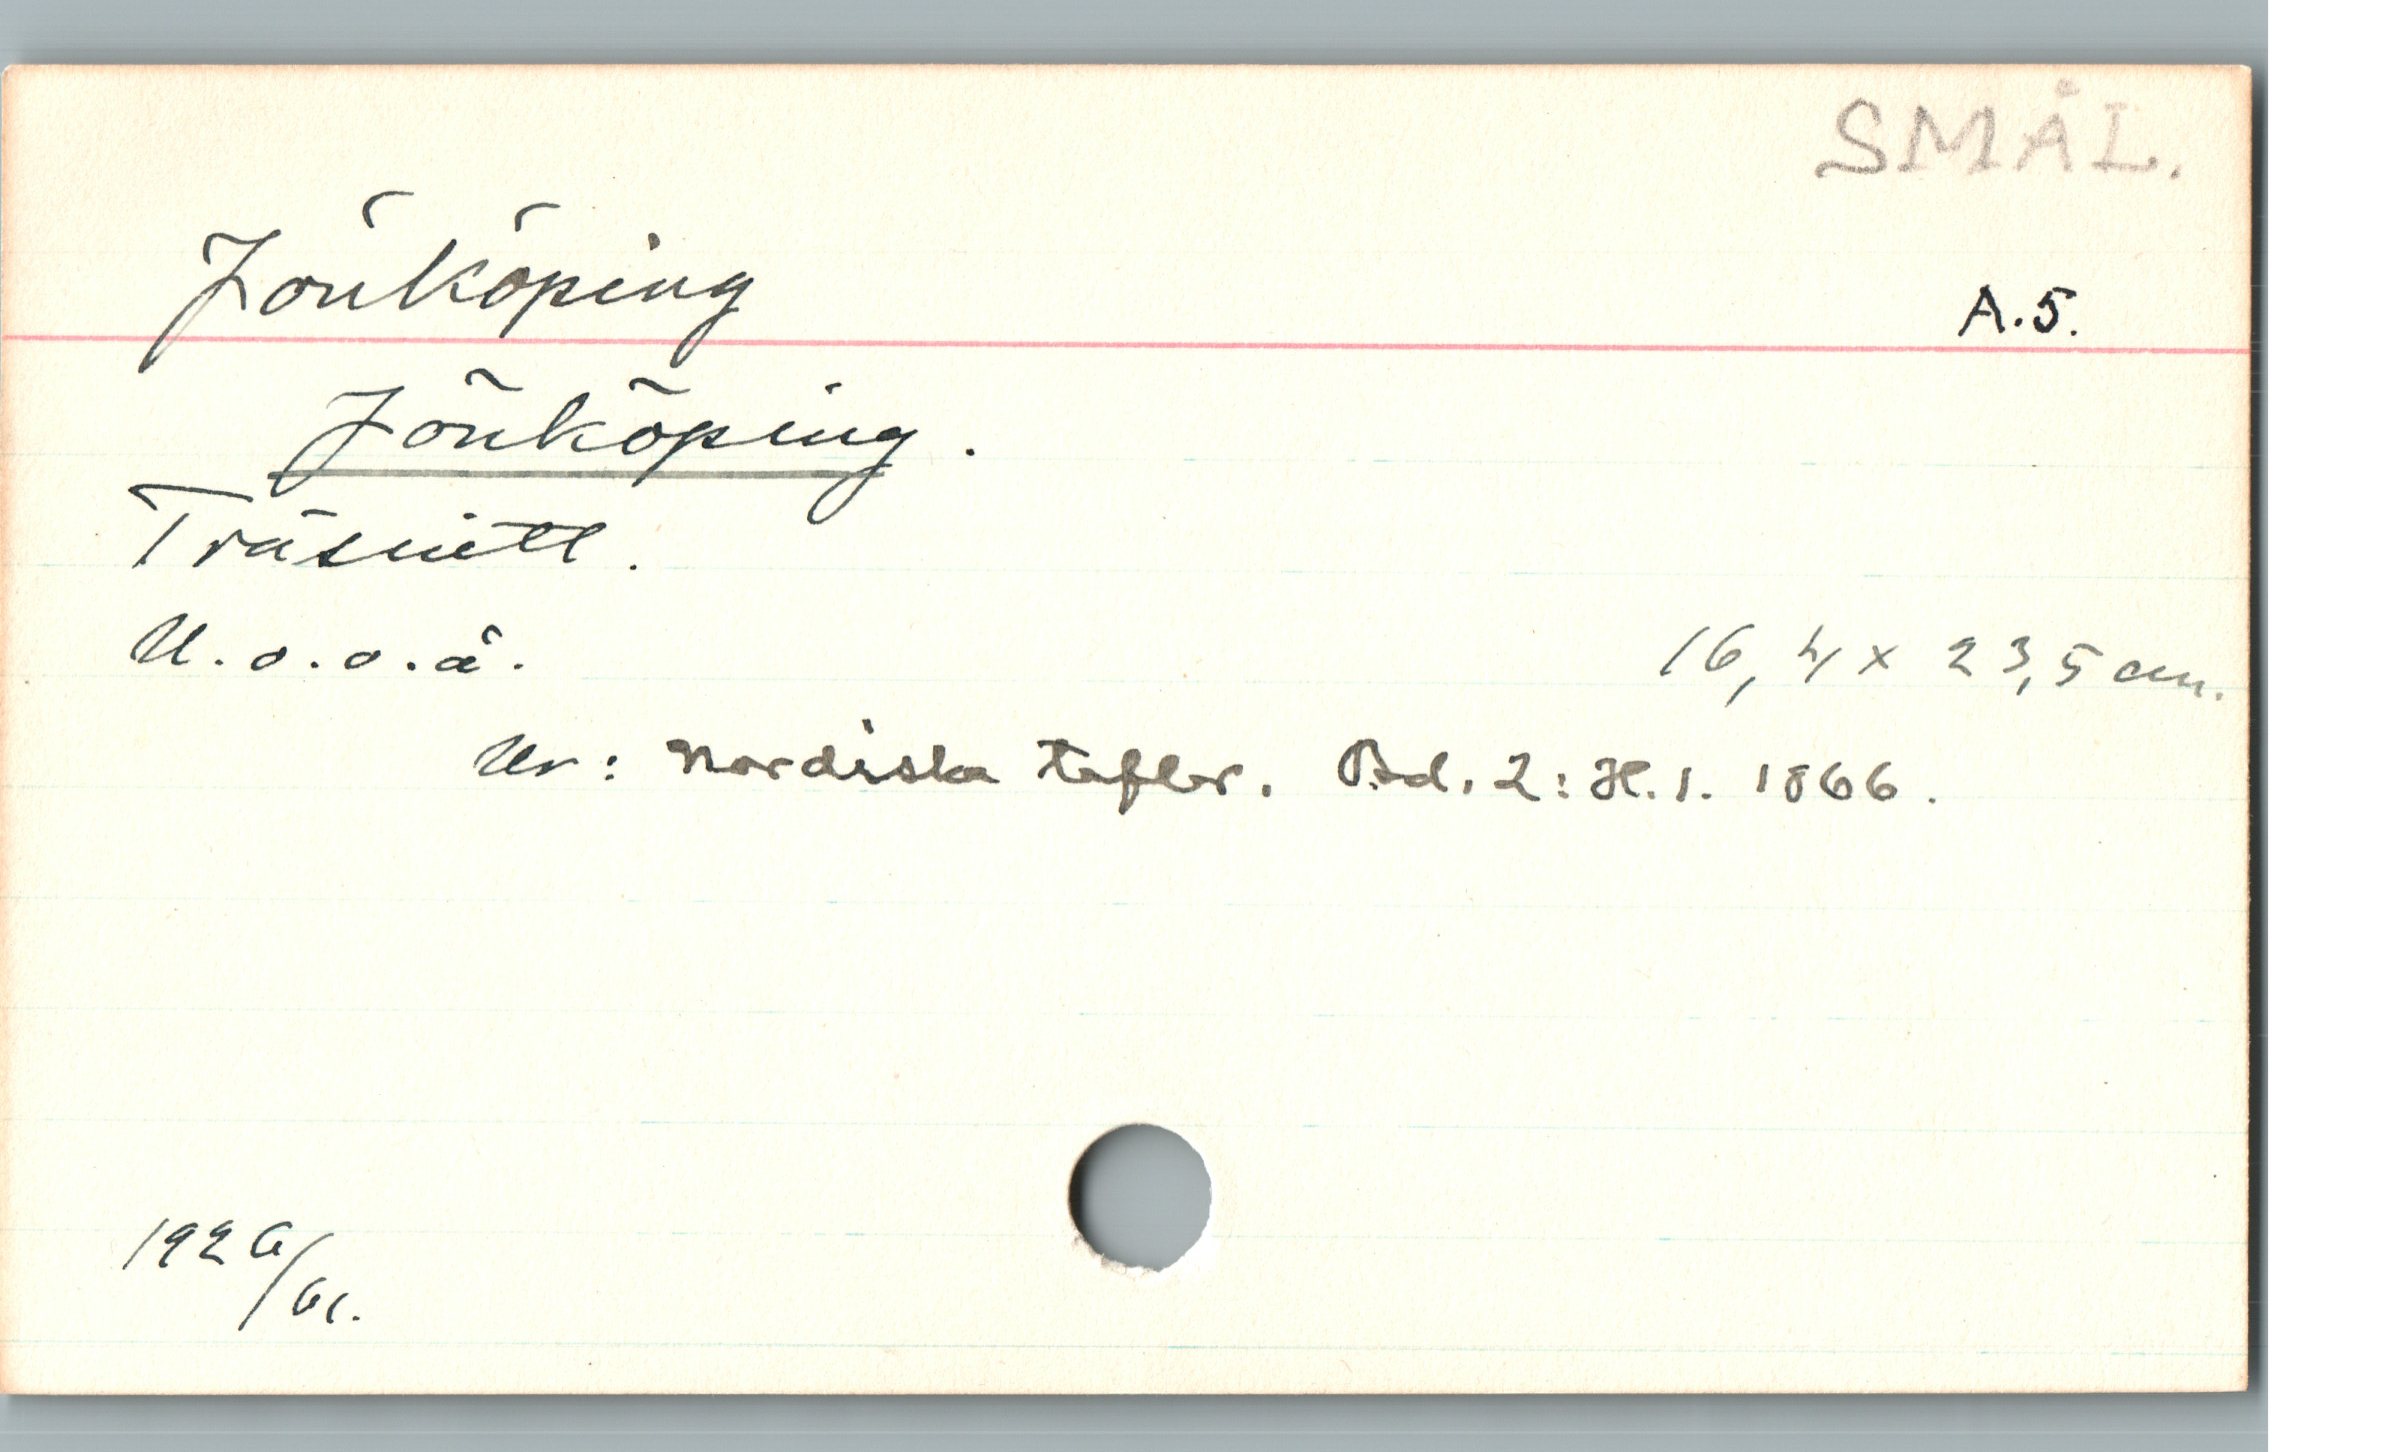 SMÅL.
Jönköping
A.5.
Jönköping.
Träsnitt.
U.o.o.å.
16,4 x 23,5 cm.
Ur: Nordiska taflor. Bd. 2: H. 1. 1866.
1926/61.